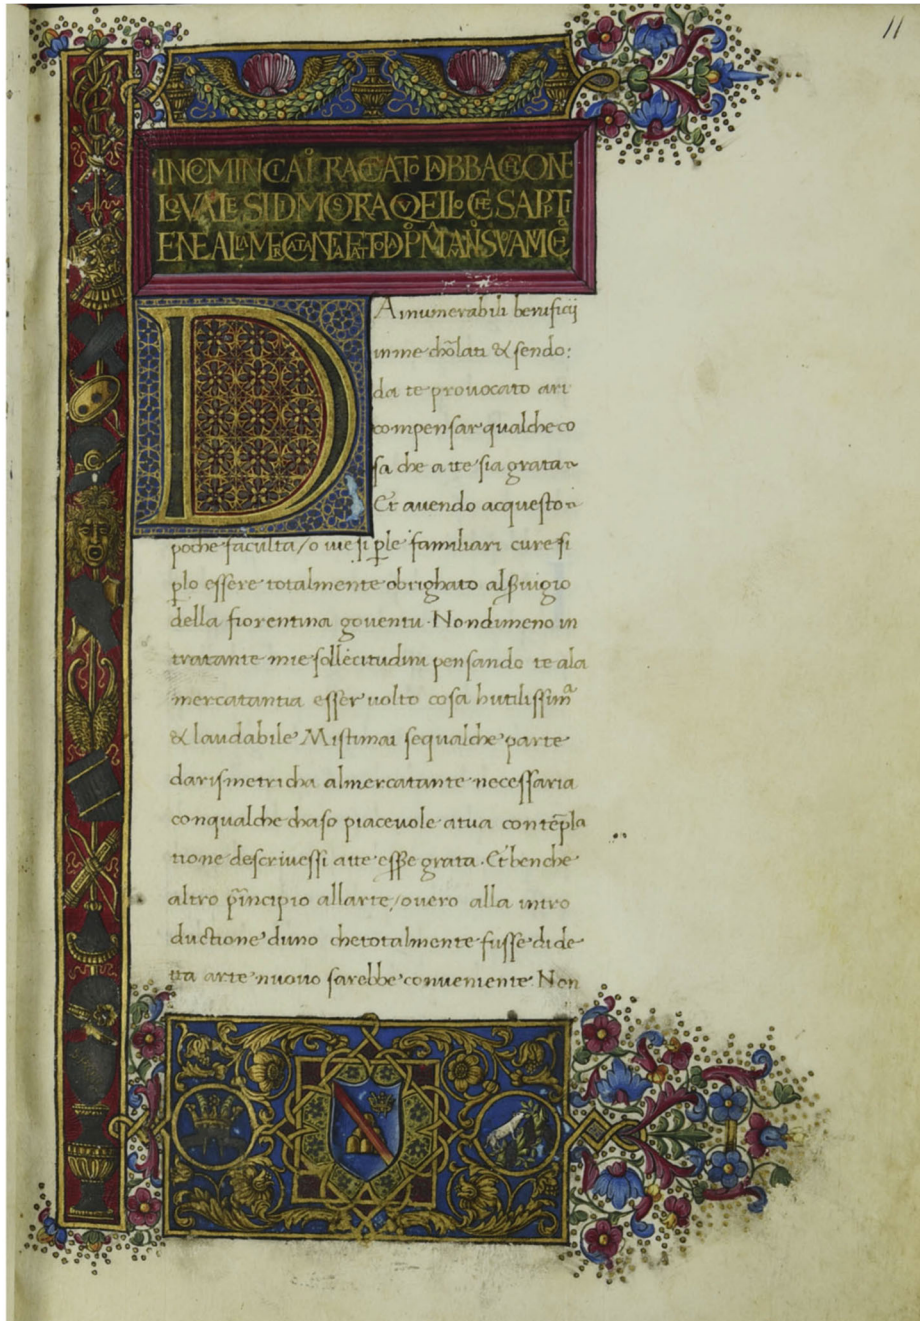 11
INCOMINCIA IL TRACTATO DABBACHO NE
LO QVALE SI DIMOSTRA QVELLO CHE SAPPARTI
ENE ALLA MERCATANTIA
DA innumerabili benificij
inme chōlati & sendo:
da te provocato ari
compensar qualche co
sa che a tte sia grata
Et avendo acquesto
poche faculta/o ue si ꝑ le familiari cure si
ꝑlo essere totalmente obrighato
della fiorentina gouentu. Nondimeno in
tratante mie sollecitudini pensando te ala
mercatantia esser uolto cosa hutilissimᵃ
& laudabile Mistimai sequalche parte
darismetricha almercatante necessaria
conqualche chaso piaceuole atua contēpla
tione descriuessi atte grata. Et benche
altro prīncipio allarte/ouero alla intro
ductione duno chetotalmente fusse dide
tta arte nuouo sarebbe conueniente. Non